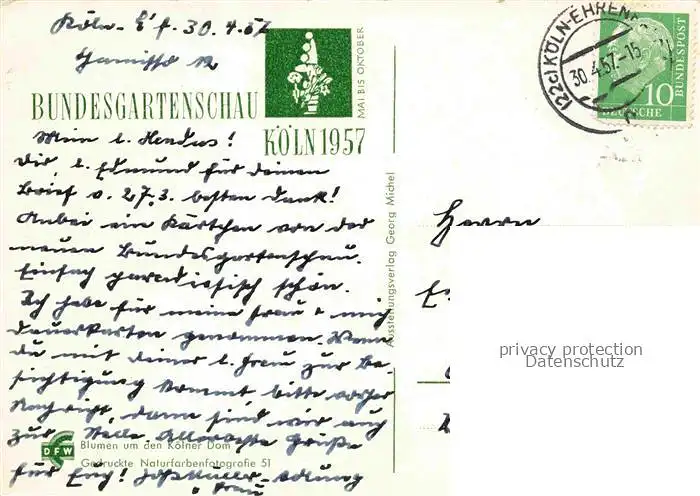 Köln-E'f. 30.4.57
MAI BIS OKTOBER
BUNDESGARTENSCHAU
KÖLN 1957
(22c) KÖLN-EHREN
30.4.57.-15
DEUTSCHE
BUNDESPOST
10
Mein l.
Dir, l. Edmund für deinen
Brief v. 27.3. besten Dank!
Anbei ein Kärtchen von der
neuen Bundesgartenschau.
Einfach paradiesisch schön.
Ich habe für meine Frau + mich
Dauerkarten genommen. Wenn
du mit deiner l. Frau zur Be
sichtigung kommst bitte vorher
Nachricht, dann sind wir auch
zur Stelle. Allerbeste Grüße
für Euch!
+ Frau
Ausstellungsverlag Georg Michel
Herrn
privacy protection
Datenschutz
DFW
Blumen um den Kölner Dom
Gedruckte Naturfarbenfotografie 51